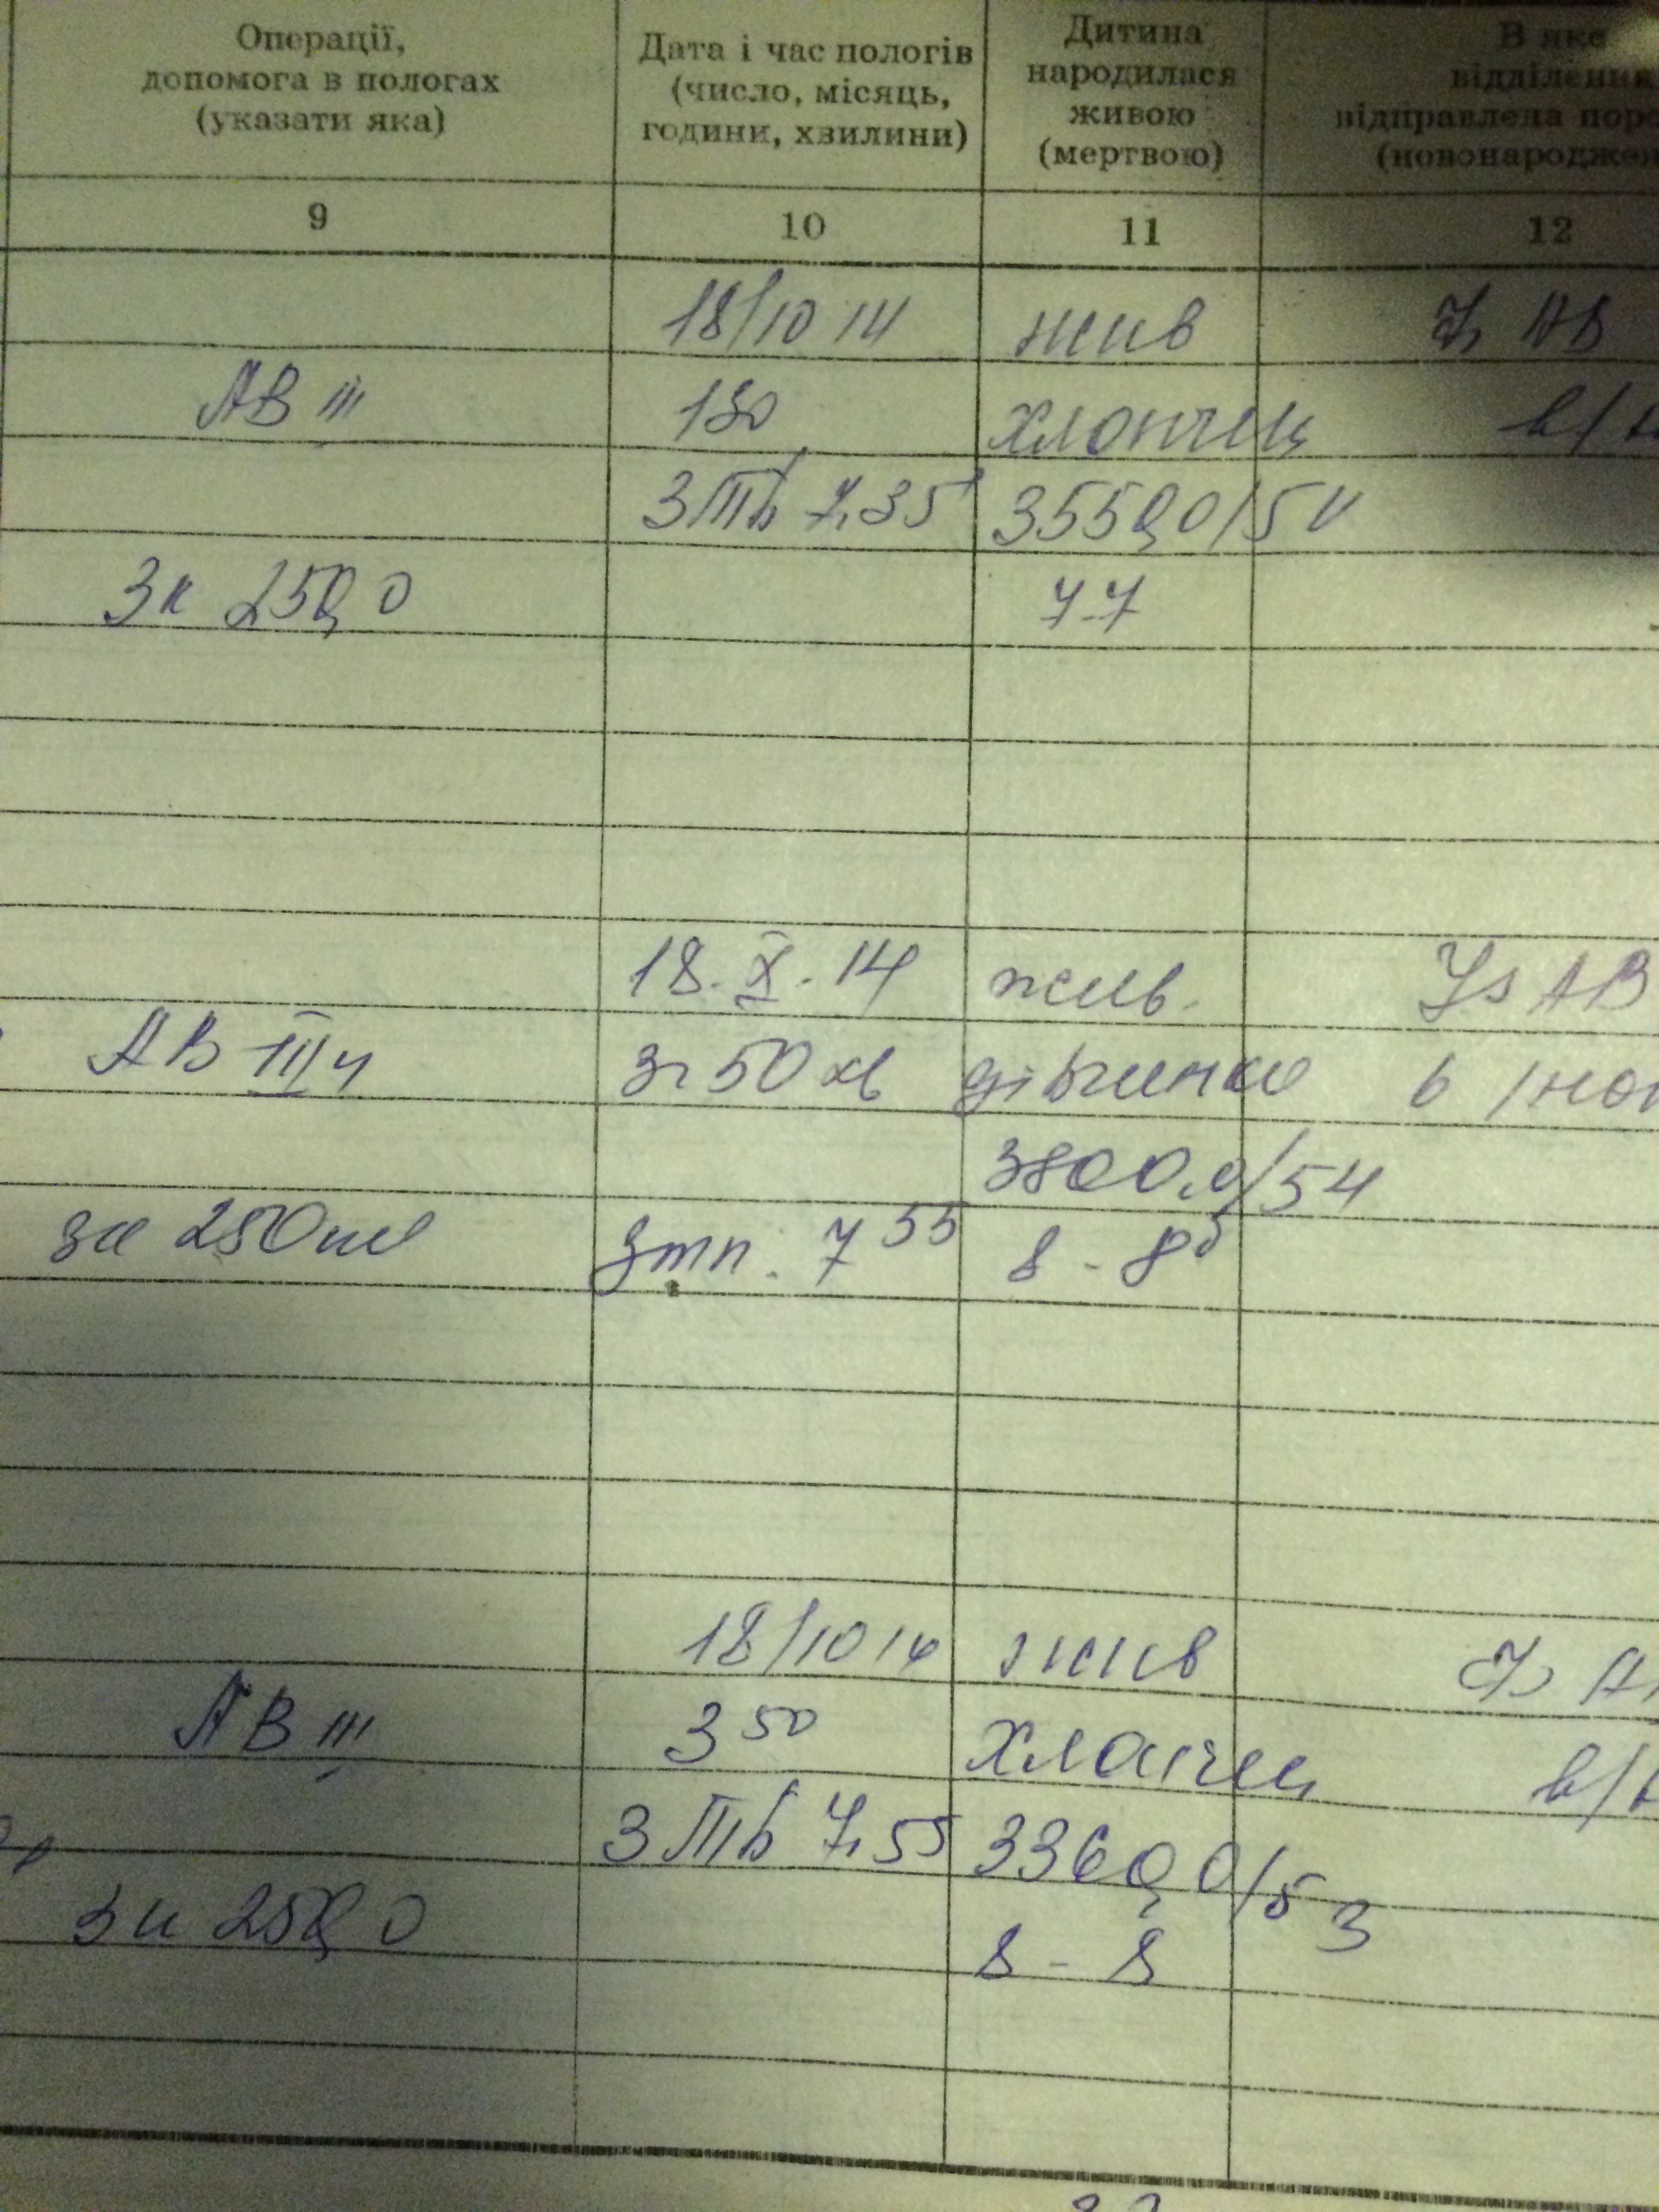 Операції,
допомога в пологах
(указати яка)
Дата і час пологів
(число, місяць,
години, хвилини)
Дитина
народилася
живою
(мертвою)
В яке
відділення
відправлена
(новонароджен
9 10 11 12
18/10 14 жив
АВ III 130 хлопчик
7,35 3550,0/54
Зк 250,0 7-7
18.X.14 жив. АВ
АВ III ч 3г 50 хв дівчинка
3800,0/54
зк 250мл 7 55 8 - 8б
18/10 14 жив
АВ III 3 50 хлопчик
7,55 3360,0/53
Зк 250,0
8 - 8